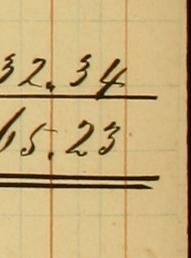 32.34
65.23